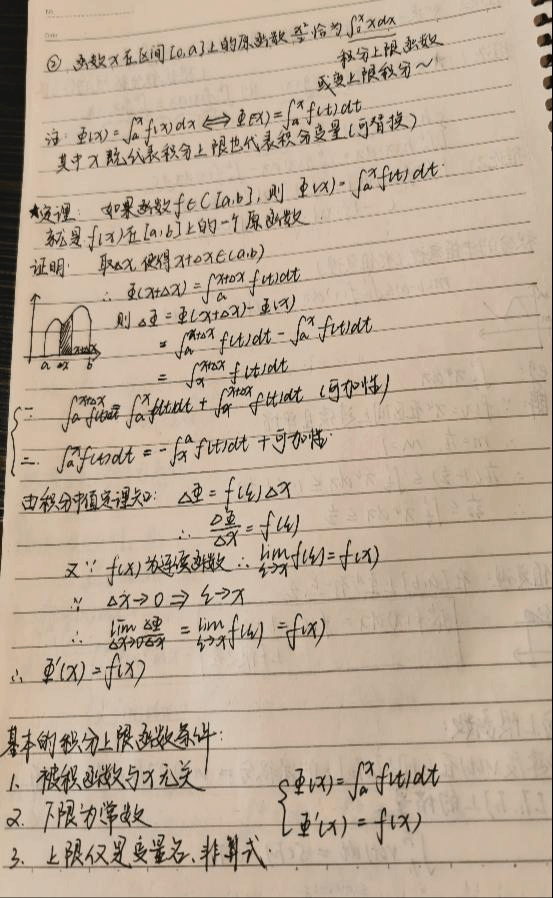 ② 函数x在区间[0,a]上的原函数 x²/2 恰为∫₀ˣxdx
积分上限函数
或变上限积分~
注: Φ(x)=∫ₐˣf(x)dx⟺Φ(x)=∫ₐˣf(t)dt
其中x既代表积分上限也代表积分变量(可替换)
★定理: 如果函数f∈C[a,b],则 Φ(x)=∫ₐˣf(t)dt
就是f(x)在[a,b]上的一个原函数
证明: 取Δx使得x+Δx∈(a,b)
∴ Φ(x+Δx)=∫ₐˣ⁺ᐃˣf(t)dt
则ΔΦ=Φ(x+Δx)-Φ(x)
=∫ₐˣ⁺ᐃˣf(t)dt-∫ₐˣf(t)dt
=∫ₓˣ⁺ᐃˣf(t)dt
a x x+Δx b
一: ∫ₐˣ⁺ᐃˣf(t)dt=∫ₐˣf(t)dt+∫ₓˣ⁺ᐃˣf(t)dt (可加性)
二. ∫ₐˣf(t)dt=-∫ₓᵃf(t)dt+可加性.
由积分中值定理知: ΔΦ=f(ξ)Δx
∴ ΔΦ/Δx=f(ξ)
又∵ f(x)为连续函数 ∴ lim ξ→x f(ξ)=f(x)
∵ Δx→0⇒ξ→x
∴ lim Δx→0 ΔΦ/Δx=lim ξ→x f(ξ)=f(x)
∴ Φ'(x)=f(x)
基本的积分上限函数条件:
1. 被积函数与x无关
2. 下限为常数
3. 上限仅是变量名,非算式.
Φ(x)=∫ₐˣf(t)dt
Φ'(x)=f(x)